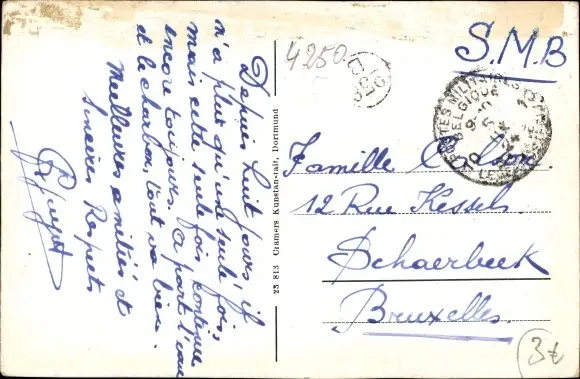 Depuis huit jours, il
n'a plut qu'une seule fois,
mais cette seule fois continue
encore toujours. A part l'eau
et le charbon, tout va bien.
Meilleures amitiés et
Sincères Respects
4250
23 813 Cramers Kunstanstalt, Dortmund
S.M.B
POSTES MILITAIRES
BELGIQUE
Famille
12 Rue Kessels.
Schaerbeek
Bruxelles.
3€